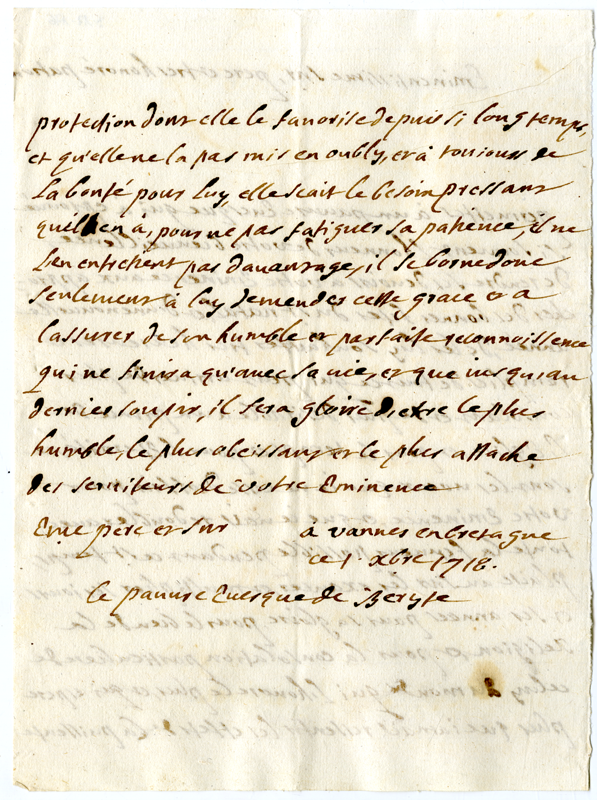 protection dont elle le favorise depuis si long temps,
et qu'elle ne la pas mis en oubly, et à toujours de
La bonté pour Luy, elle scait le besoin pressant
quil en à, pour ne pas fatiguer sa patience, il ne
L'en entretient pas davantage, il se borne donc
seulement à luy demender cette grace et a
lassurer de son humble et parfaite reconnoissence
qui ne finira qu'avec sa vie, et que jusqu'au
dernier soupir, il sera gloire d'etre le plus
humble, le plus obeissant et le plus attaché
des serviteurs de votre Eminence
Eme pere et sur à vannes en bretagne
ce 1. xbre 1718.
le pauvre Evesque de Beryte